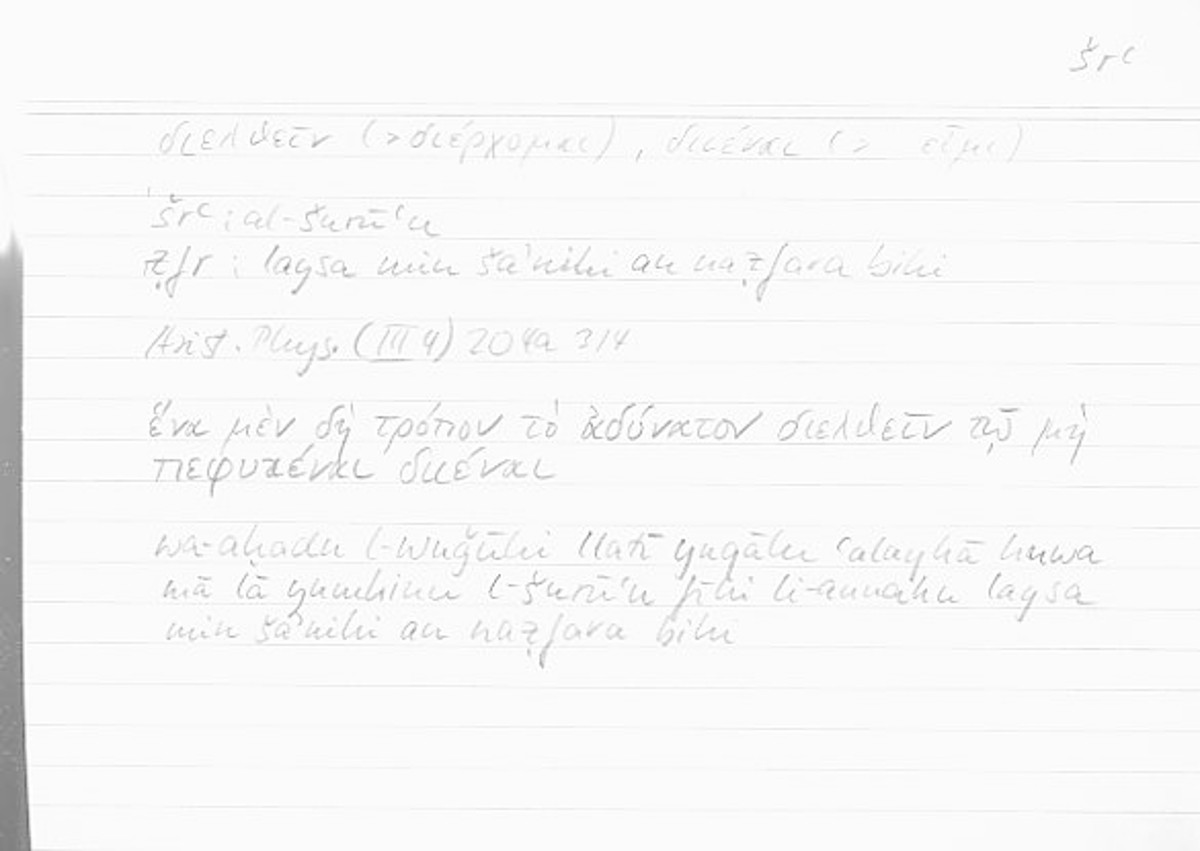 šrʿ
διελθεῖν (> διέρχομαι), διιέναι (> εἶμι)
šrʿ : al-šurūʿu
ẓfr : laysa min šaʾnihi an naẓfara bihi
Arist. Phys. (III 4) 204a 3/4
ἕνα μὲν δὴ τρόπον τὸ ἀδύνατον διελθεῖν τῷ μὴ
πεφυκέναι διιέναι
wa-aḥadu l-wuǧūhi llatī yuqālu ʿalayhā huwa
mā lā yumkinu l-šurūʿu fīhi li-annahu laysa
min šaʾnihi an naẓfara bihi